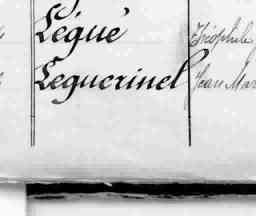 Légué Théophile
Leguerinel Jean Mar